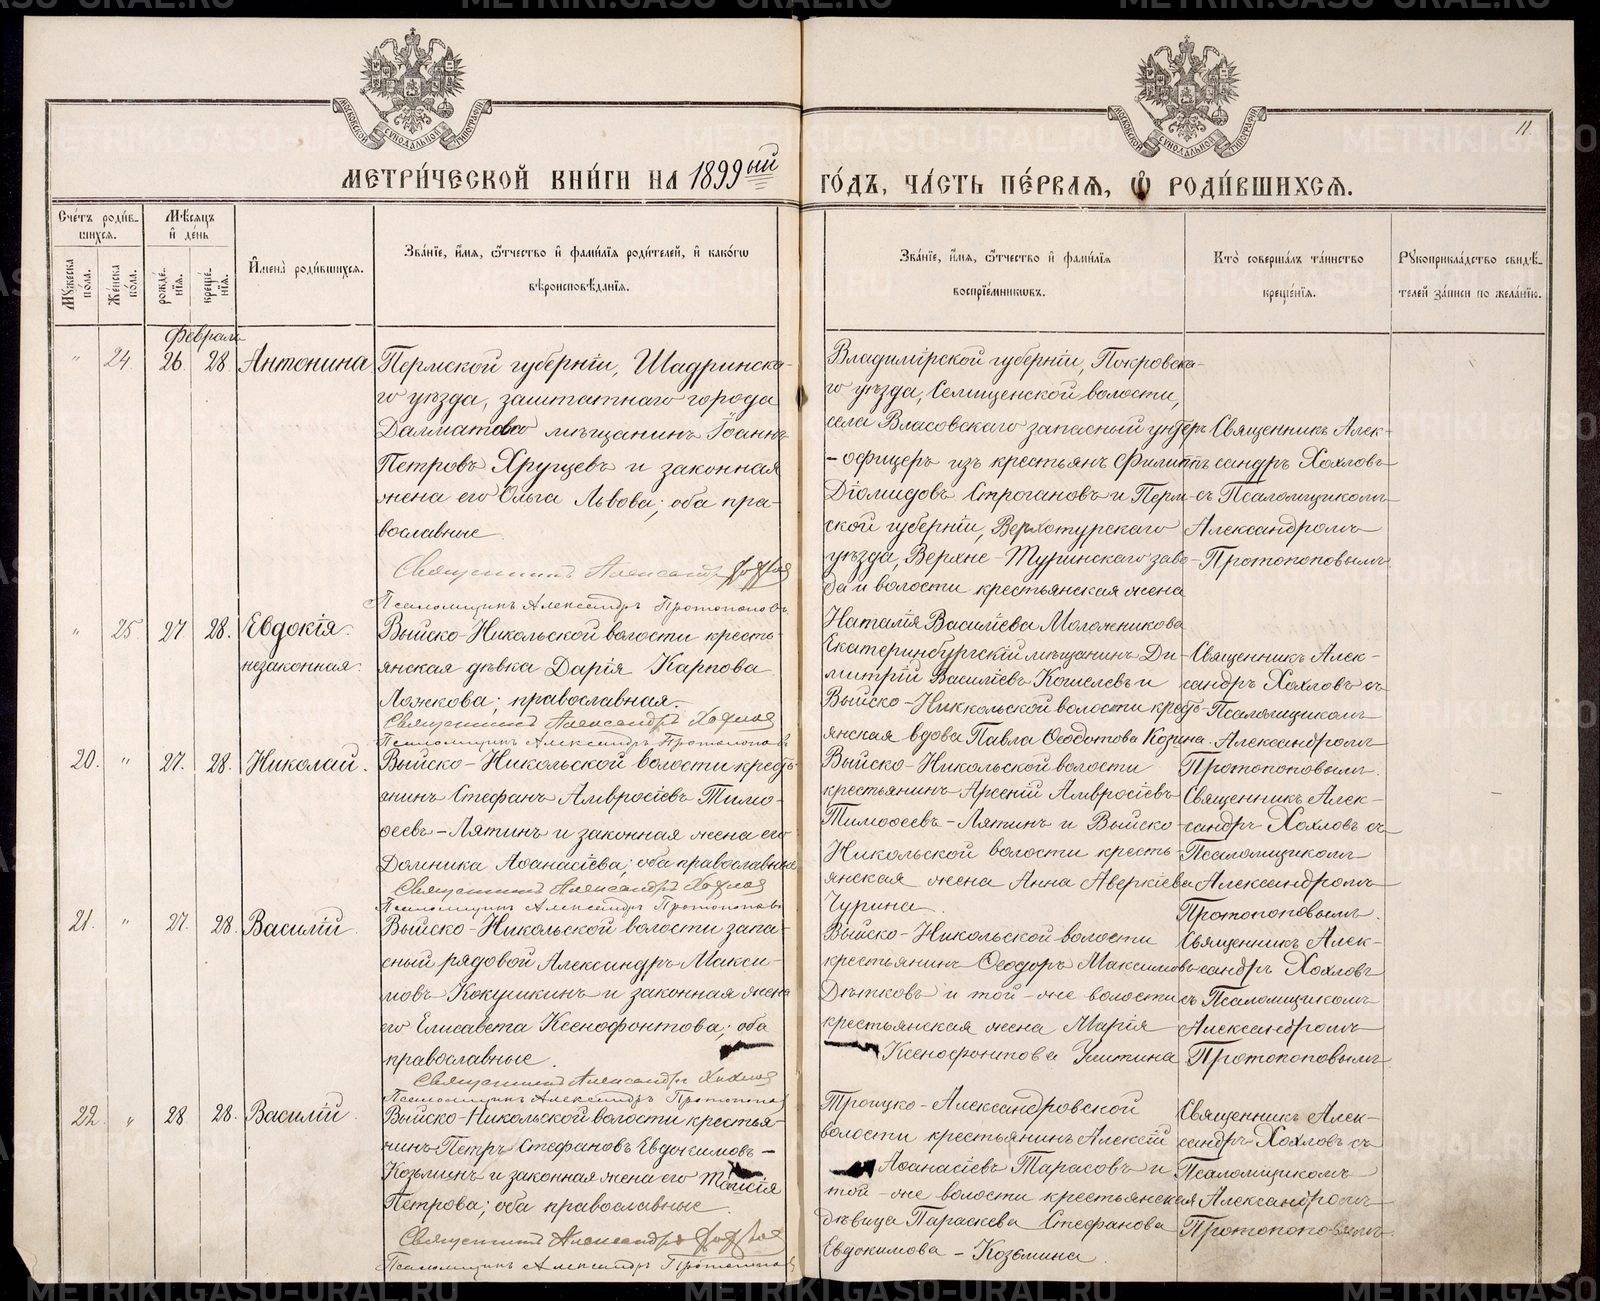 МЕТРИ́ЧЕСКОЙ КНИ́ГИ НА 1899ый
ГО́ДЪ, ЧА́СТЬ ПЕ́РВАЯ, Ѿ РОДИ́ВШИХСЯ.
11
Сче́тъ роди́в-
шихся.
Му́жеска по́ла.
Же́нска по́ла.
Мѣ́сяцъ и де́нь
рожде́-
нія.
креще́-
нія.
Имена̀ роди́вшихся.
Зва́ніе, и́мя, ѻ́тчество и фами́лія роди́телей, и како́гѡ
вѣроисповѣ́данія.
Зва́ніе, и́мя, ѻ́тчество и фами́лія
воспріе́мникѡвъ.
Кто̀ соверша́лъ та́инство
креще́нія.
Рукоприкла́дство свидѣ́-
телей за́писи по жела́нію.
Февраль
" 24. 26. 28. Антонина
Пермской губерніи, Шадринска-
го уѣзда, заштатнаго города
Далматова мѣщанинъ Іоаннъ
Петровъ Хрущевъ и законная
жена его Ольга Львова; оба пра-
вославные.
Священникъ Александръ Хохловъ
Псаломщикъ Александръ Протопоповъ
Владимірской губерніи, Покровска-
го уѣзда, Селищенской волости,
села Власовскаго запасный унтеръ
-офицеръ изъ крестьянъ Филиппъ
Діомидовъ Строгановъ и Перм-
ской губерніи, Верхотурскаго
уѣзда, Верхне-Туринскаго заво-
да и волости крестьянская жена
Наталія Василіева Моложникова
Священникъ Алек-
сандръ Хохловъ
съ Псаломщикомъ
Александромъ
Протопоповымъ
" 25 27 28. Евдокія.
незаконная.
Выйско-Никольской волости кресть-
янская дѣвка Дарія Карпова
Ложкова; православная.
Священникъ Александръ Хохловъ
Псаломщикъ Александръ Протопоповъ
Екатеринбургскій мѣщанинъ Ди-
митрій Василіевъ Кошелевъ и
Выйско-Николькой волости кресть-
янская вдова Павла Ѳеодотова Козина
Священникъ Алек-
сандръ Хохловъ съ
Псаломщикомъ
Александромъ
Протопоповымъ.
20. " 27. 28. Николай.
Выйско-Никольской волости кресть-
анинъ Стефанъ Амвросіевъ Тимо-
ѳеевъ-Лятинъ и законная жена его
Домника Аѳанасіева; оба православные
Священникъ Александръ Хохловъ
Псаломщикъ Александръ Протопоповъ
Выйско-Никольской волости
крестьянинъ Арсеній Амвросіевъ
Тимоѳеевъ-Лятинъ и Выйско-
Никольской волости кресть-
янская жена Анна Аверкіева
Чурина.
Священникъ Алек-
сандръ Хохловъ съ
Псаломщикомъ
Александромъ
Протопоповымъ.
21. " 27. 28. Василій.
Выйско-Никольской волости запа-
сный рядовой Александръ Макси-
мовъ Кокушкинъ и законная жена
его Елисавета Ксенофонтова; оба
православные.
Священникъ Александръ Хохловъ
Псаломщикъ Александръ Протопоповъ
Выйско-Никольской волости
крестьянинъ Ѳеодоръ Максимовъ
Дѣтковъ и той-же волости
крестьянская жена Марія
Ксенофонтова Улитина
Священникъ Алек-
сандръ Хохловъ
съ Псаломщикомъ
Александромъ
Протопоповымъ
22. " 28 28. Василій.
Выйско-Никольской волости крестья-
нинъ Петръ Стефановъ Евдокимовъ-
Козьминъ и законная жена его Таисія
Петрова; оба православные.
Священникъ Александръ Хохловъ
Псаломщикъ Александръ Протопоповъ
Троицко-Александровской
волости крестьянинъ Алексій
Аѳанасіевъ Тарасовъ и
той-же волости крестьянская
дѣвица Параскева Стефанова
Евдокимова-Козьмина.
Священникъ Алек-
сандръ Хохловъ съ
Псаломщикомъ
Александромъ
Протопоповымъ.
METRIKI.GASO-URAL.RU